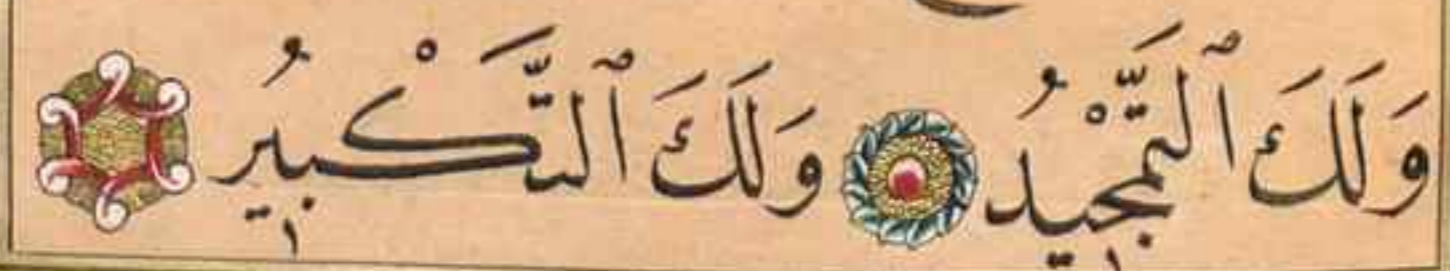 وَلَكَ ٱلتَّمْجِيدُ وَلَكَ ٱلتَّكْبِيرُ